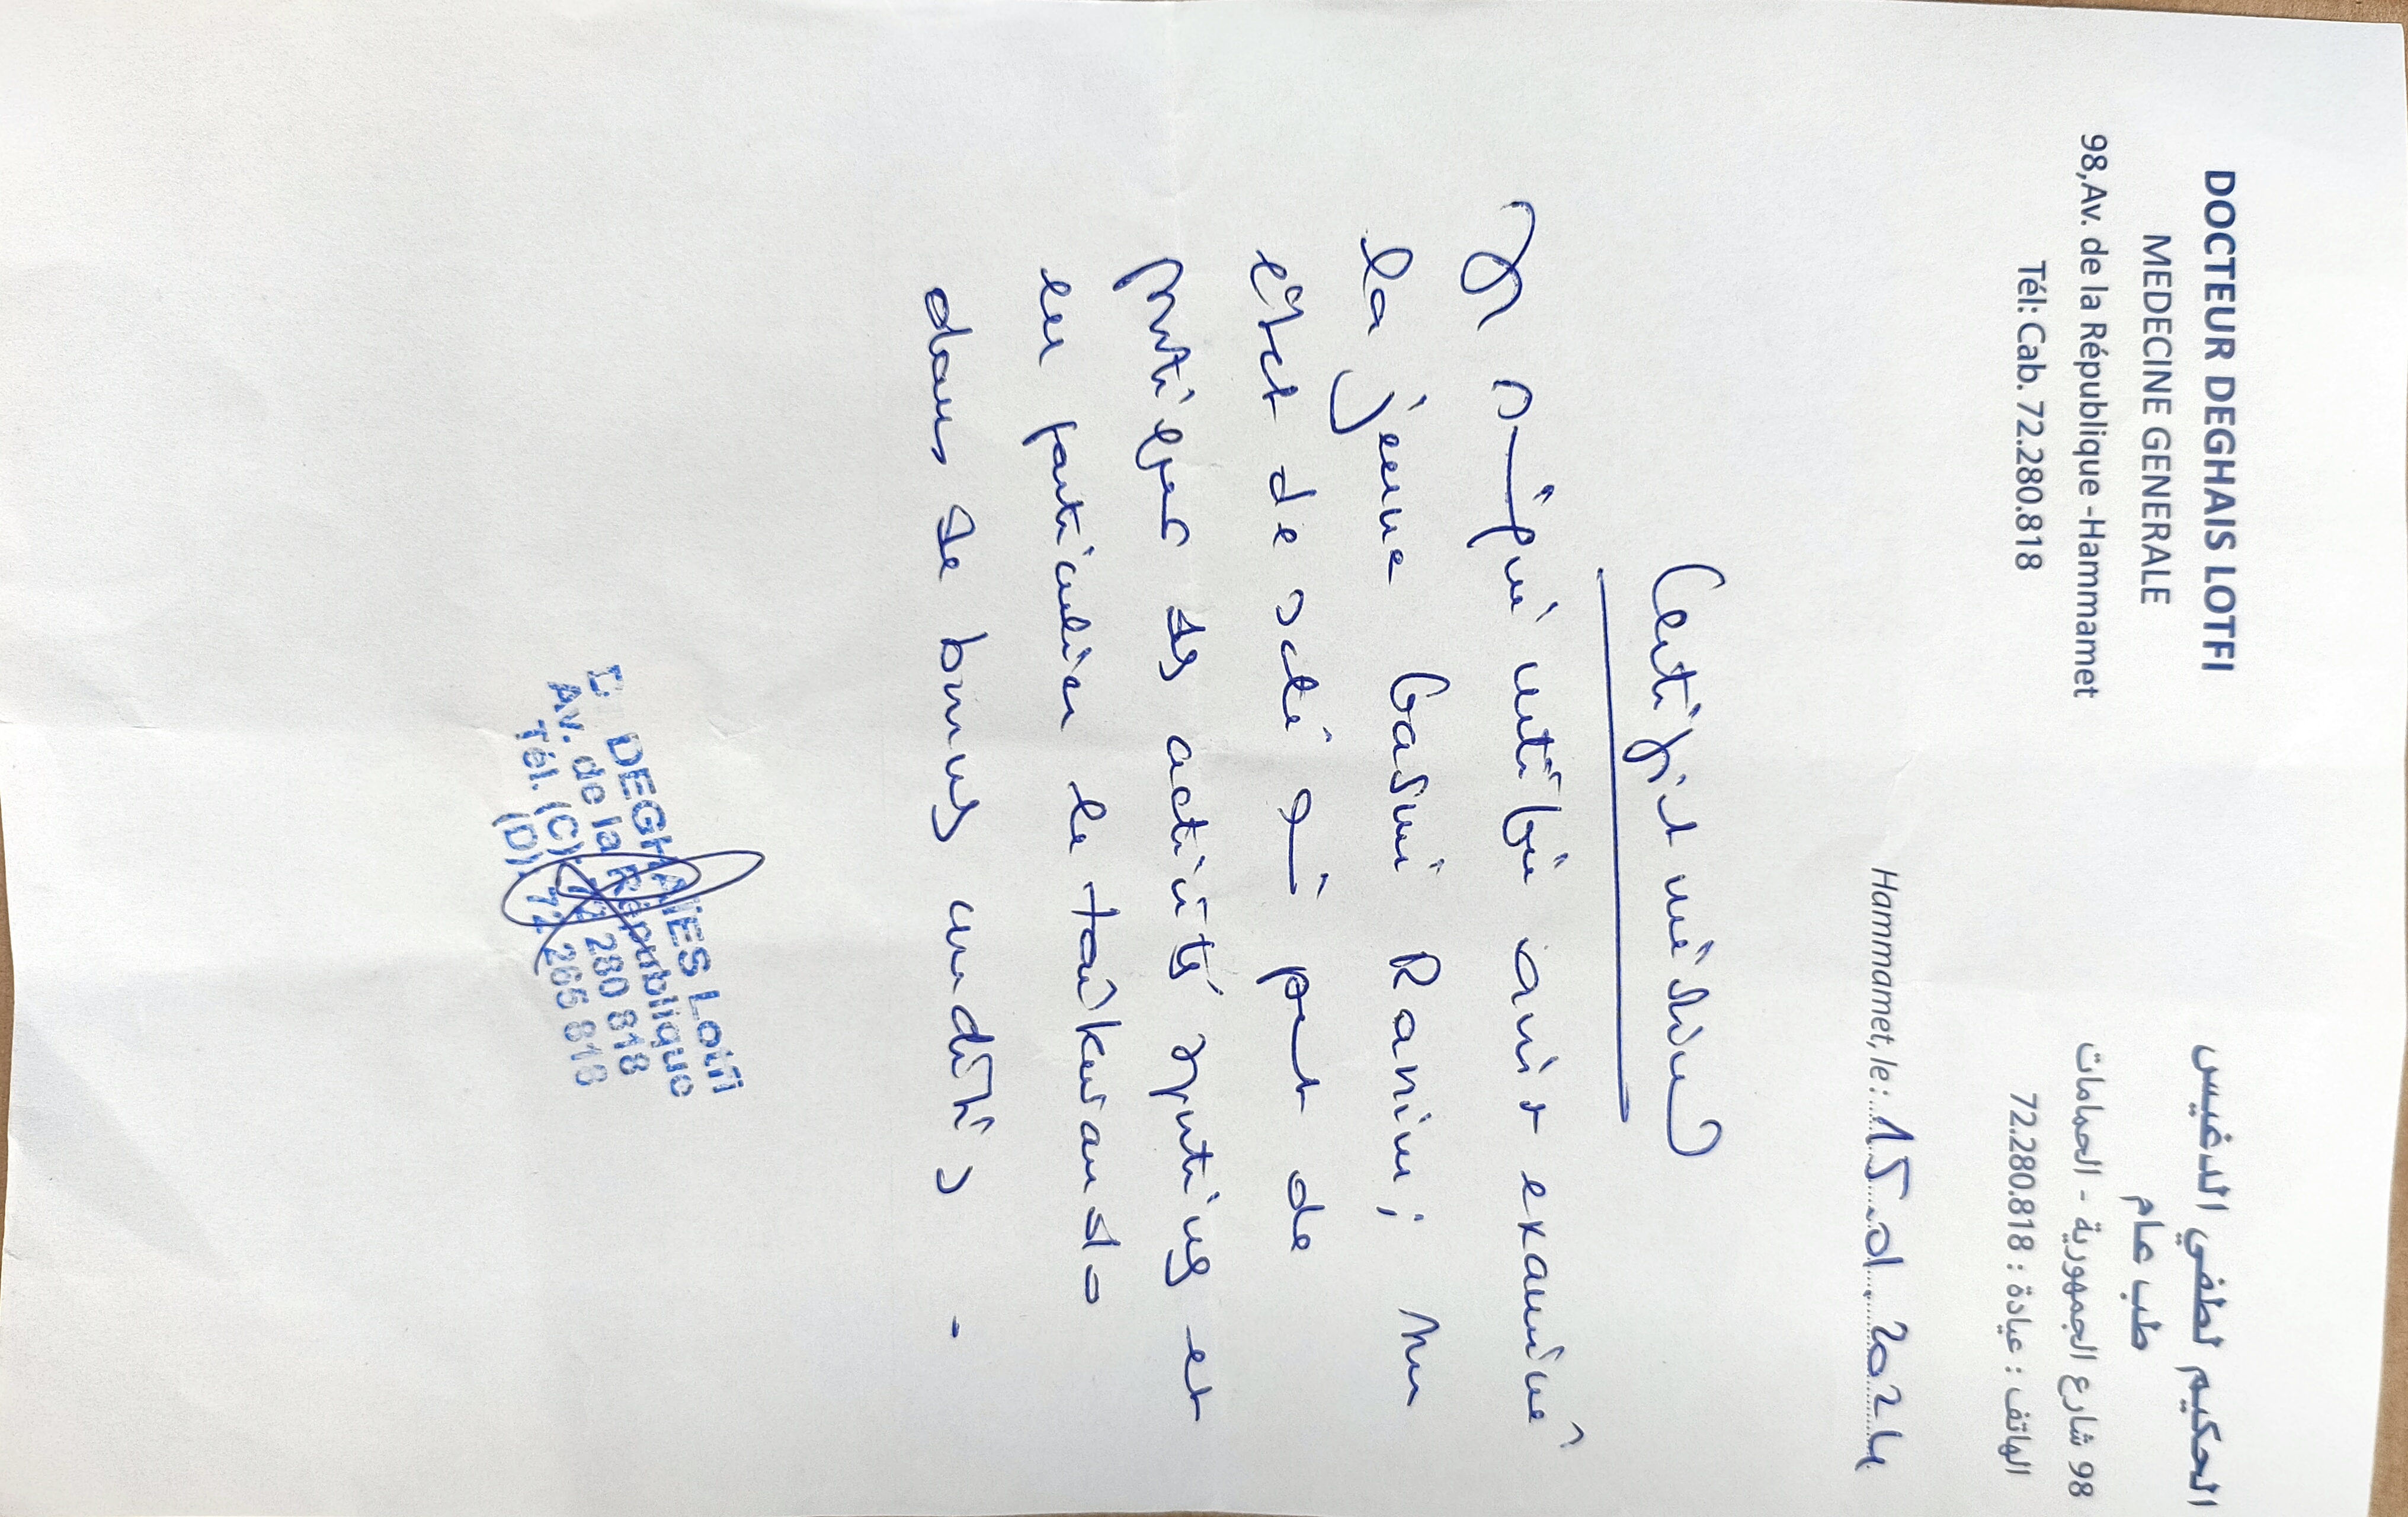 DOCTEUR DEGHAIS LOTFI
MEDECINE GENERALE
98,Av. de la République -Hammamet
Tél: Cab. 72.280.818
الحكيم لطفي الدغيس
طب عام
98 شارع الجمهورية - الحمامات
الهاتف : عيادة : 72.280.818
Hammamet, le : 15.01.2024
Certificat médical
Je soussigné certifie avoir examiné
la jeune Gasmi Ranim; son
état de santé qui permet de
pratiquer des activités sportives et
en particulier le taikwando
dans de bonnes conditions.
Dr DEGHAIES Lotfi
Av. de la République
Tél. (C): 72 280 818
(D): 72 265 818